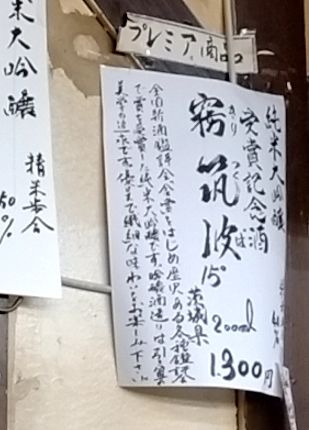 プレミア商品
純米大吟醸
受賞記念酒
きり つくば
霧筑波
15°
茨城県
200ml
1300円
全国新酒鑑評会金賞をはじめ歴史ある各種鑑評会
で賞を受賞した純米大吟醸です。吟醸酒造りは引算
美学の追求です。優美で繊細な味わいをお楽しみ下さい
米大吟醸
精米歩合
50%